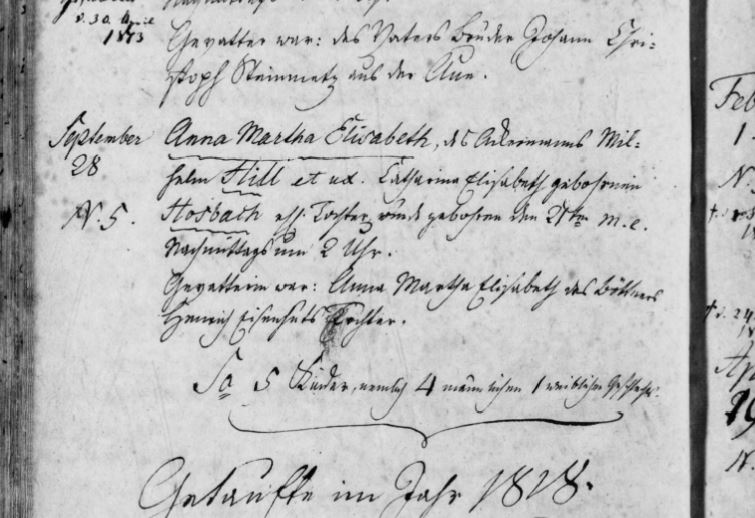 d. 30. April
1873
Gevatter war: des Vaters Bruder Johann Chri-
stoph Steinmetz aus der Aue.
September
28
N. 5.
Anna Martha Elisabeth, des Ackermanns Wil-
helm Hill et ux. Catharina Elisabeth gebohrnen
Hosbach ehl. Tochter, wurde gebohren den 21ten m. c.
Nachmittags um 2 Uhr.
Gevatterin war: Anna Martha Elisabeth des Böttners
Henrich Eisenhuts Tochter.
Sa 5 Kinder, nemlich 4 männlichen 1 weiblichen Geschlechts.
Getaufte im Jahr 1818.
Feb
1
N.